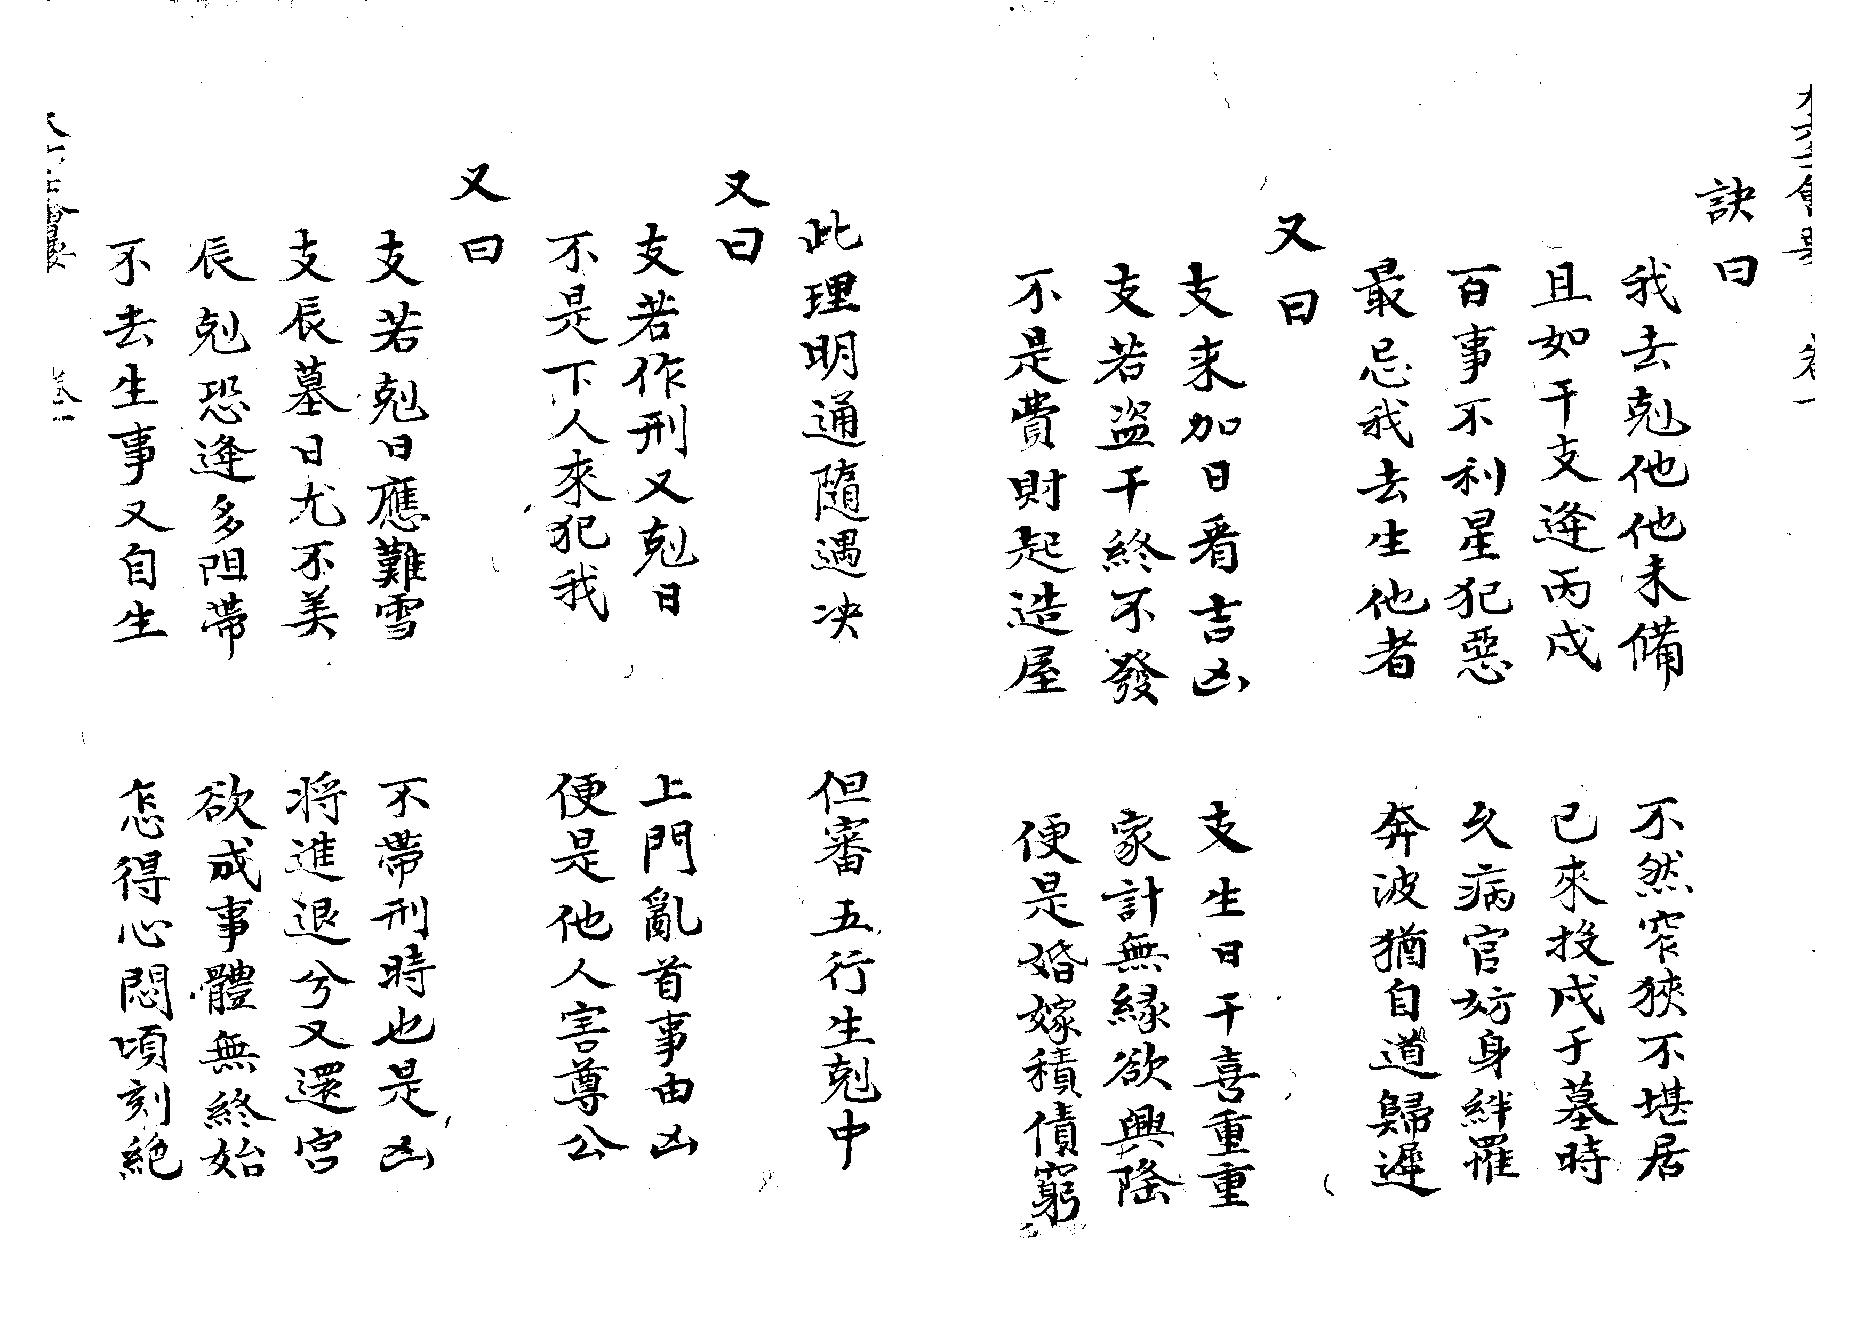 訣曰
我去剋他他未備　不然窄狹不堪居
且如干支逢丙戌　已來投戌于墓時
百事不利星犯惡　久病官妨身絆羅
最忌我去生他者　奔波猶自道歸遲
又曰
支来加日看吉凶　支生日干喜重重
支若盗干終不發　家計無緣欲興隆
不是費財起造屋　便是婚嫁積債窮
此理明通隨遇决　但審五行生剋中
又曰
支若作刑又剋日　上門亂首事由凶
不是下人來犯我　便是他人害尊公
又曰
支若剋日應難雪　不帶刑時也是凶
支辰墓日尤不美　將進退兮又還宮
辰剋恐逢多阻帶　欲成事體無終始
不去生事又自生　怎得心悶頃刻絕